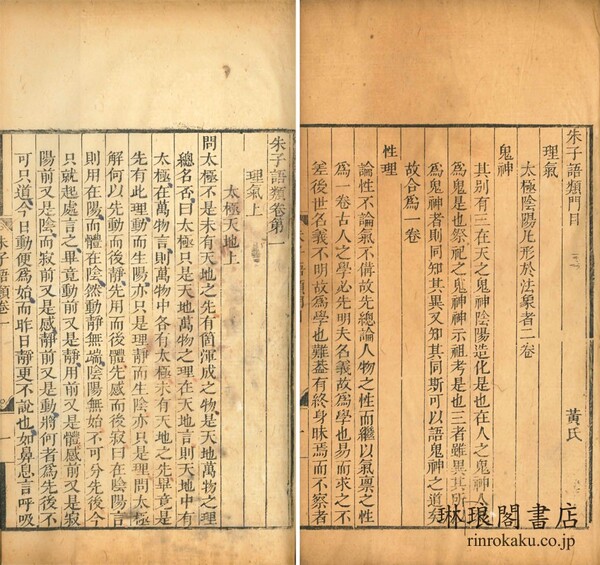 朱子語類門目 黃氏
理氣
太極陰陽凡形於法象者二卷
鬼神
其別有三在天之鬼神陰陽造化是也在人之鬼神人
爲鬼是也祭祀之鬼神神示祖考是也三者雖異其所
爲鬼神者則同知其異又知其同斯可以語鬼神之道矣
故合爲一卷
性理
論性不論氣不備故先總論人物之性而繼以氣稟之性
爲一卷古人之學必先明夫名義故爲學也易而求之不
差後世名義不明故爲學也難蓋有終身昧焉而不察者
朱子語類卷第一
理氣上
太極天地上
問太極不是未有天地之先有箇渾成之物是天地萬物之理
總名否曰太極只是天地萬物之理在天地言則天地中有
太極在萬物言則萬物中各有太極未有天地之先畢竟是
先有此理動而生陽亦只是理靜而生陰亦只是理問太極
解何以先動而後靜先用而後體先感而後寂曰在陰陽言
則用在陽而體在陰然動靜無端陰陽無始不可分先後今
只就起處言之畢竟動前又是靜用前又是體感前又是寂
陽前又是陰而寂前又是感靜前又是動將何者爲先後不
可只道今日動便爲始而昨日靜更不說也如鼻息言呼吸
朱子語類卷一
一
琳琅閣書店
rinrokaku.co.jp